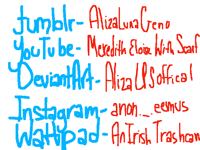 tumblr- AlizaLunaGeno
YouTube- Meredith Eloise With Scarf
DeviantArt- AlizaUSoffical
Instagram- anon._.eemus
Wattpad- AnIrishTrashcan